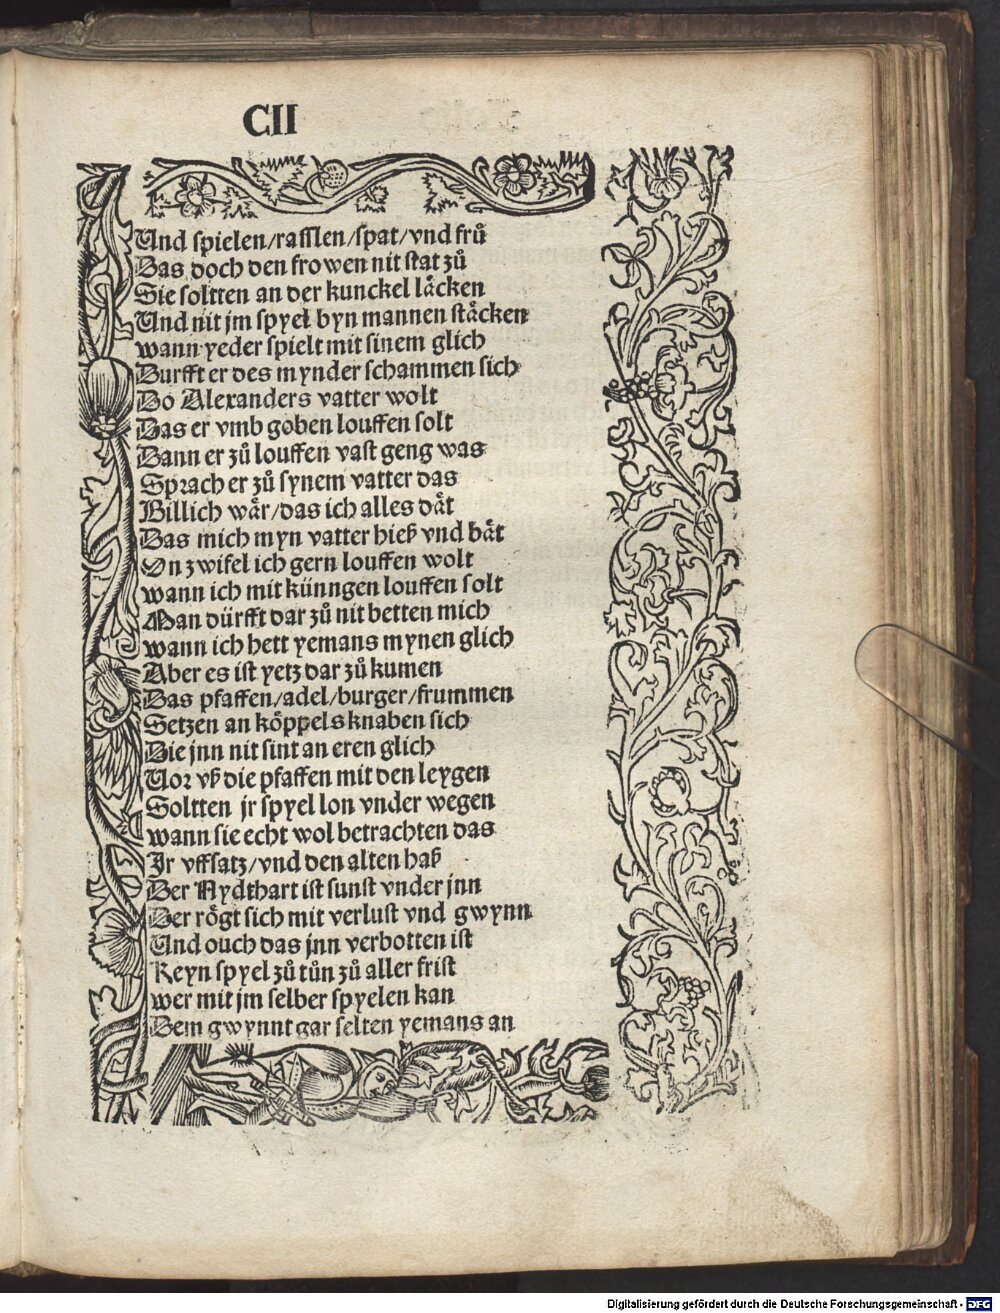 CII
Und spielen/rasslen/spat/vnd fruͦ
Das doch den frowen nit stat zuͦ
Sie soltten an der kunckel laͤcken
Und nit jm spyel byn mannen staͤcken
wann yeder spielt mit sinem glich
Durfft er des mynder schammen sich
Do Alexanders vatter wolt
Das er vmb goben louffen solt
Dann er zuͦ louffen vast geng was
Sprach er zuͦ synem vatter das
Billich waͤr/das ich alles daͤt
Das mich myn vatter hieß vnd baͤt
On zwifel ich gern louffen wolt
wann ich mit künngen louffen solt
Man dürfft dar zuͦ nit betten mich
wann ich hett yemans mynen glich
Aber es ist yetz dar zuͦ kumen
Das pfaffen/adel/burger/frummen
Setzen an koͤppels knaben sich
Die jnn nit sint an eren glich
Vor vß die pfaffen mit den leygen
Soltten jr spyel lon vnder wegen
wann sie echt wol betrachten das
Ir vffsatz/vnd den alten haß
Der Nydthart ist sunst vnder jnn
Der roͤgt sich mit verlust vnd gwynn
Und ouch das jnn verbotten ist
Keyn spyel zuͦ tuͦn zuͦ aller frist
wer mit jm selber spyelen kan
Dem gwynnt gar selten yemans an
Digitalisierung gefördert durch die Deutsche Forschungsgemeinschaft - DFG